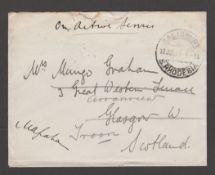 On Active Service
SALISBURY
S. RHODESIA
Mrs Mungo Graham
3 Great Western Terrace
Glasgow W.
Troon
Scotland.